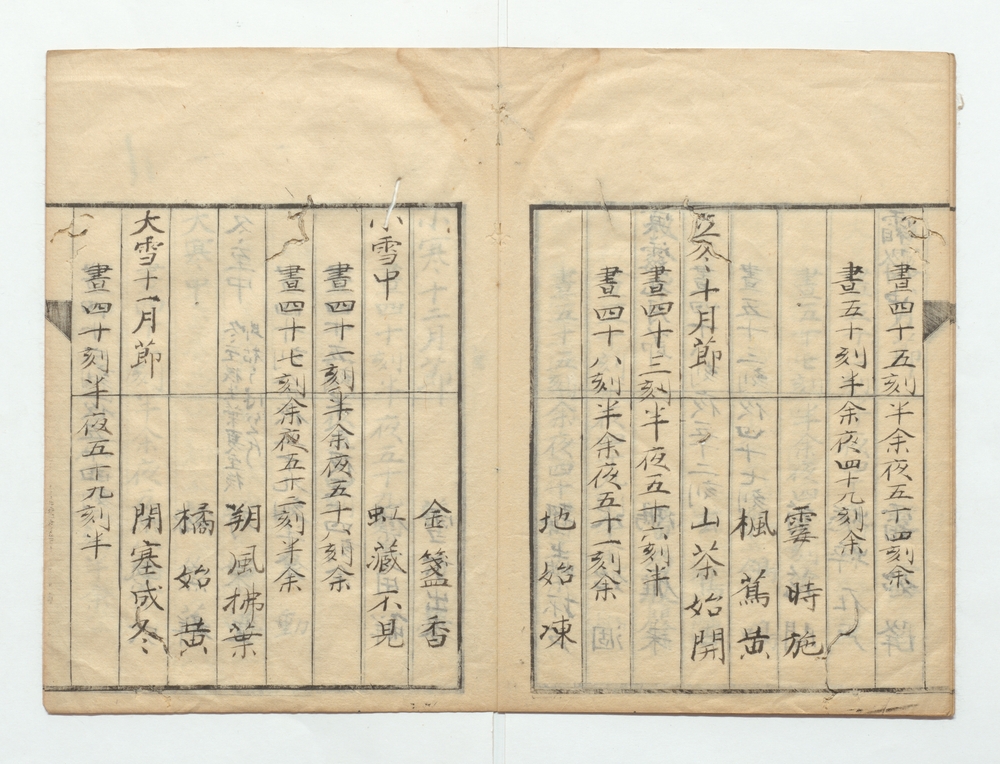 晝四十五刻半余夜五十四刻余
晝五十刻半余夜四十九刻余
霎時施
楓蔦黄
立冬十月節
山茶始開
晝四十三刻半夜五十六刻半
晝四十八刻半余夜五十一刻余
地始凍
金盞出香
小雪中
虹藏不見
晝四十五刻半余夜五十四刻余
晝四十七刻余夜五十二刻半余
朔風拂葉
橘始黄
大雪十一月節
閉塞成冬
晝四十刻半夜五十九刻半